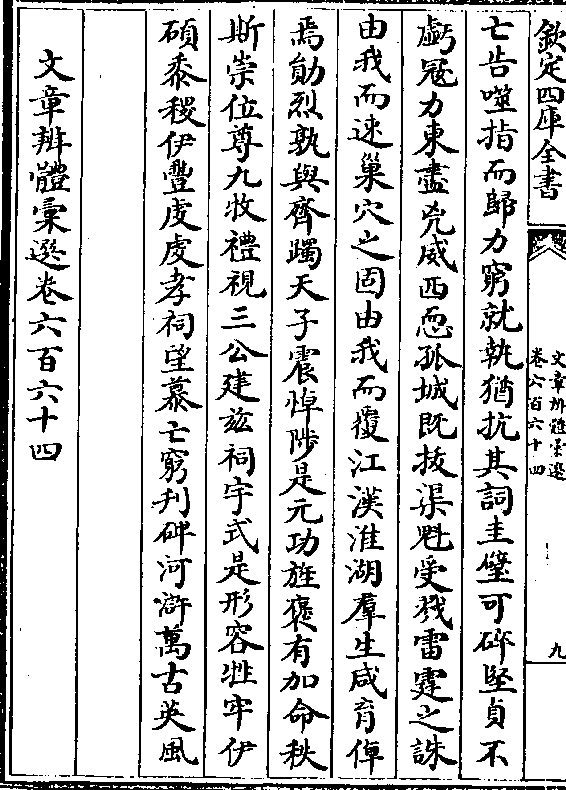 欽定四庫全書
文章辨體彙選
卷六百六十四
九
亡告噬指而歸力窮就執猶抗其詞圭璧可碎堅貞不
虧冦力東盡兇威西恧孤城既拔渠魁受戮雷霆之誅
由我而速巢穴之固由我而覆江漢淮湖羣生咸育倬
焉勛烈孰與齊躅天子震悼陟是元功旌褒有加命秩
斯崇位尊九牧禮視三公建兹祠宇式是形容牲牢伊
碩黍稷伊豐虔虔孝祠望慕亡窮刋碑河滸萬古英風
文章辨體彙選卷六百六十四